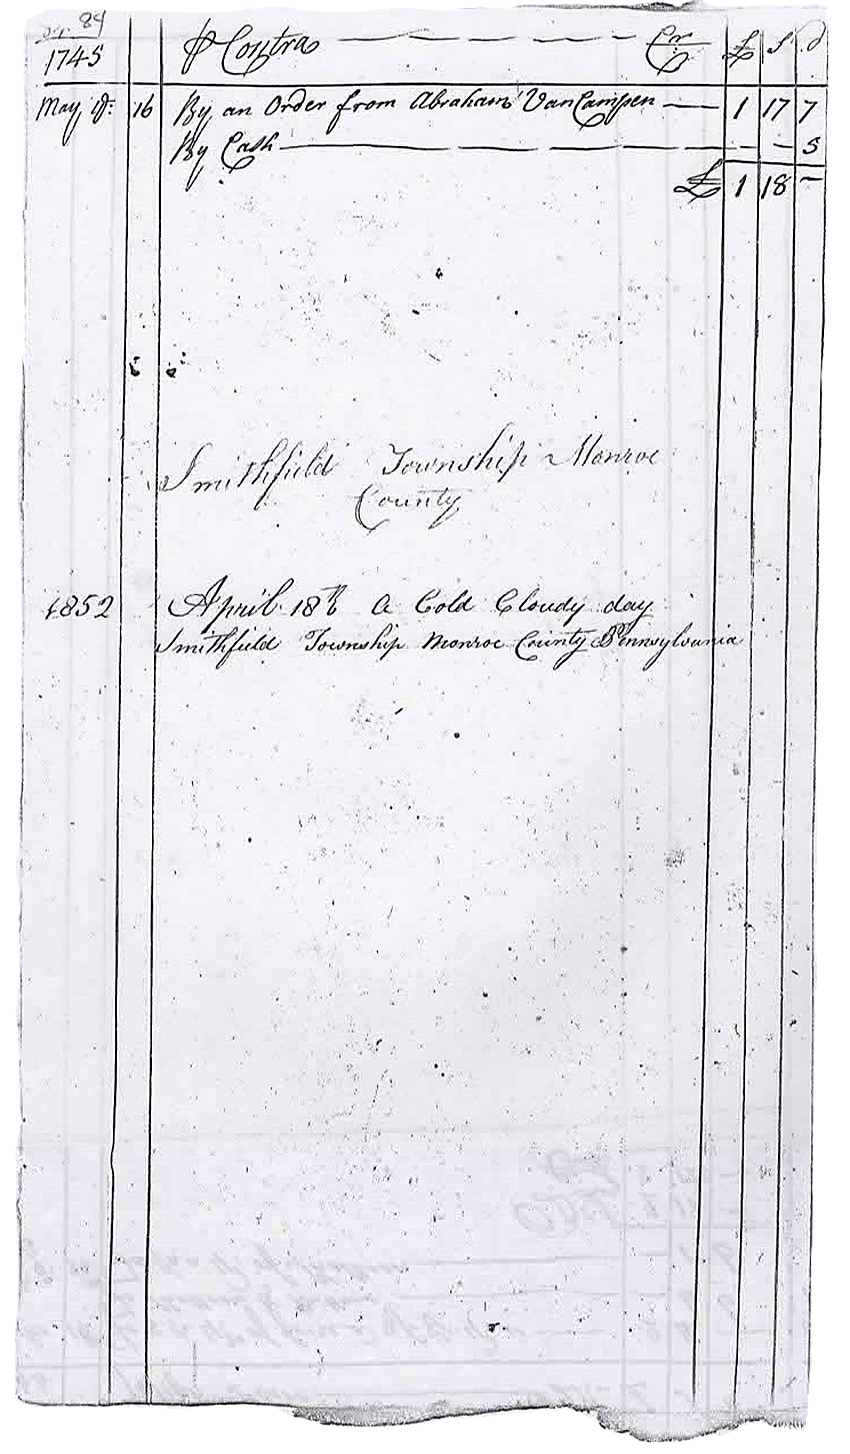 84
1745 ₽ Contra Cr £ S d
May ye: 16 By an Order from Abraham VanCampen 1 17 7
By Cash 5
£ 1 18 –
Smithfield Township Monroe
County
1852 April 18th A Cold Cloudy day
Smithfield Township Monroe County Pennsylvania